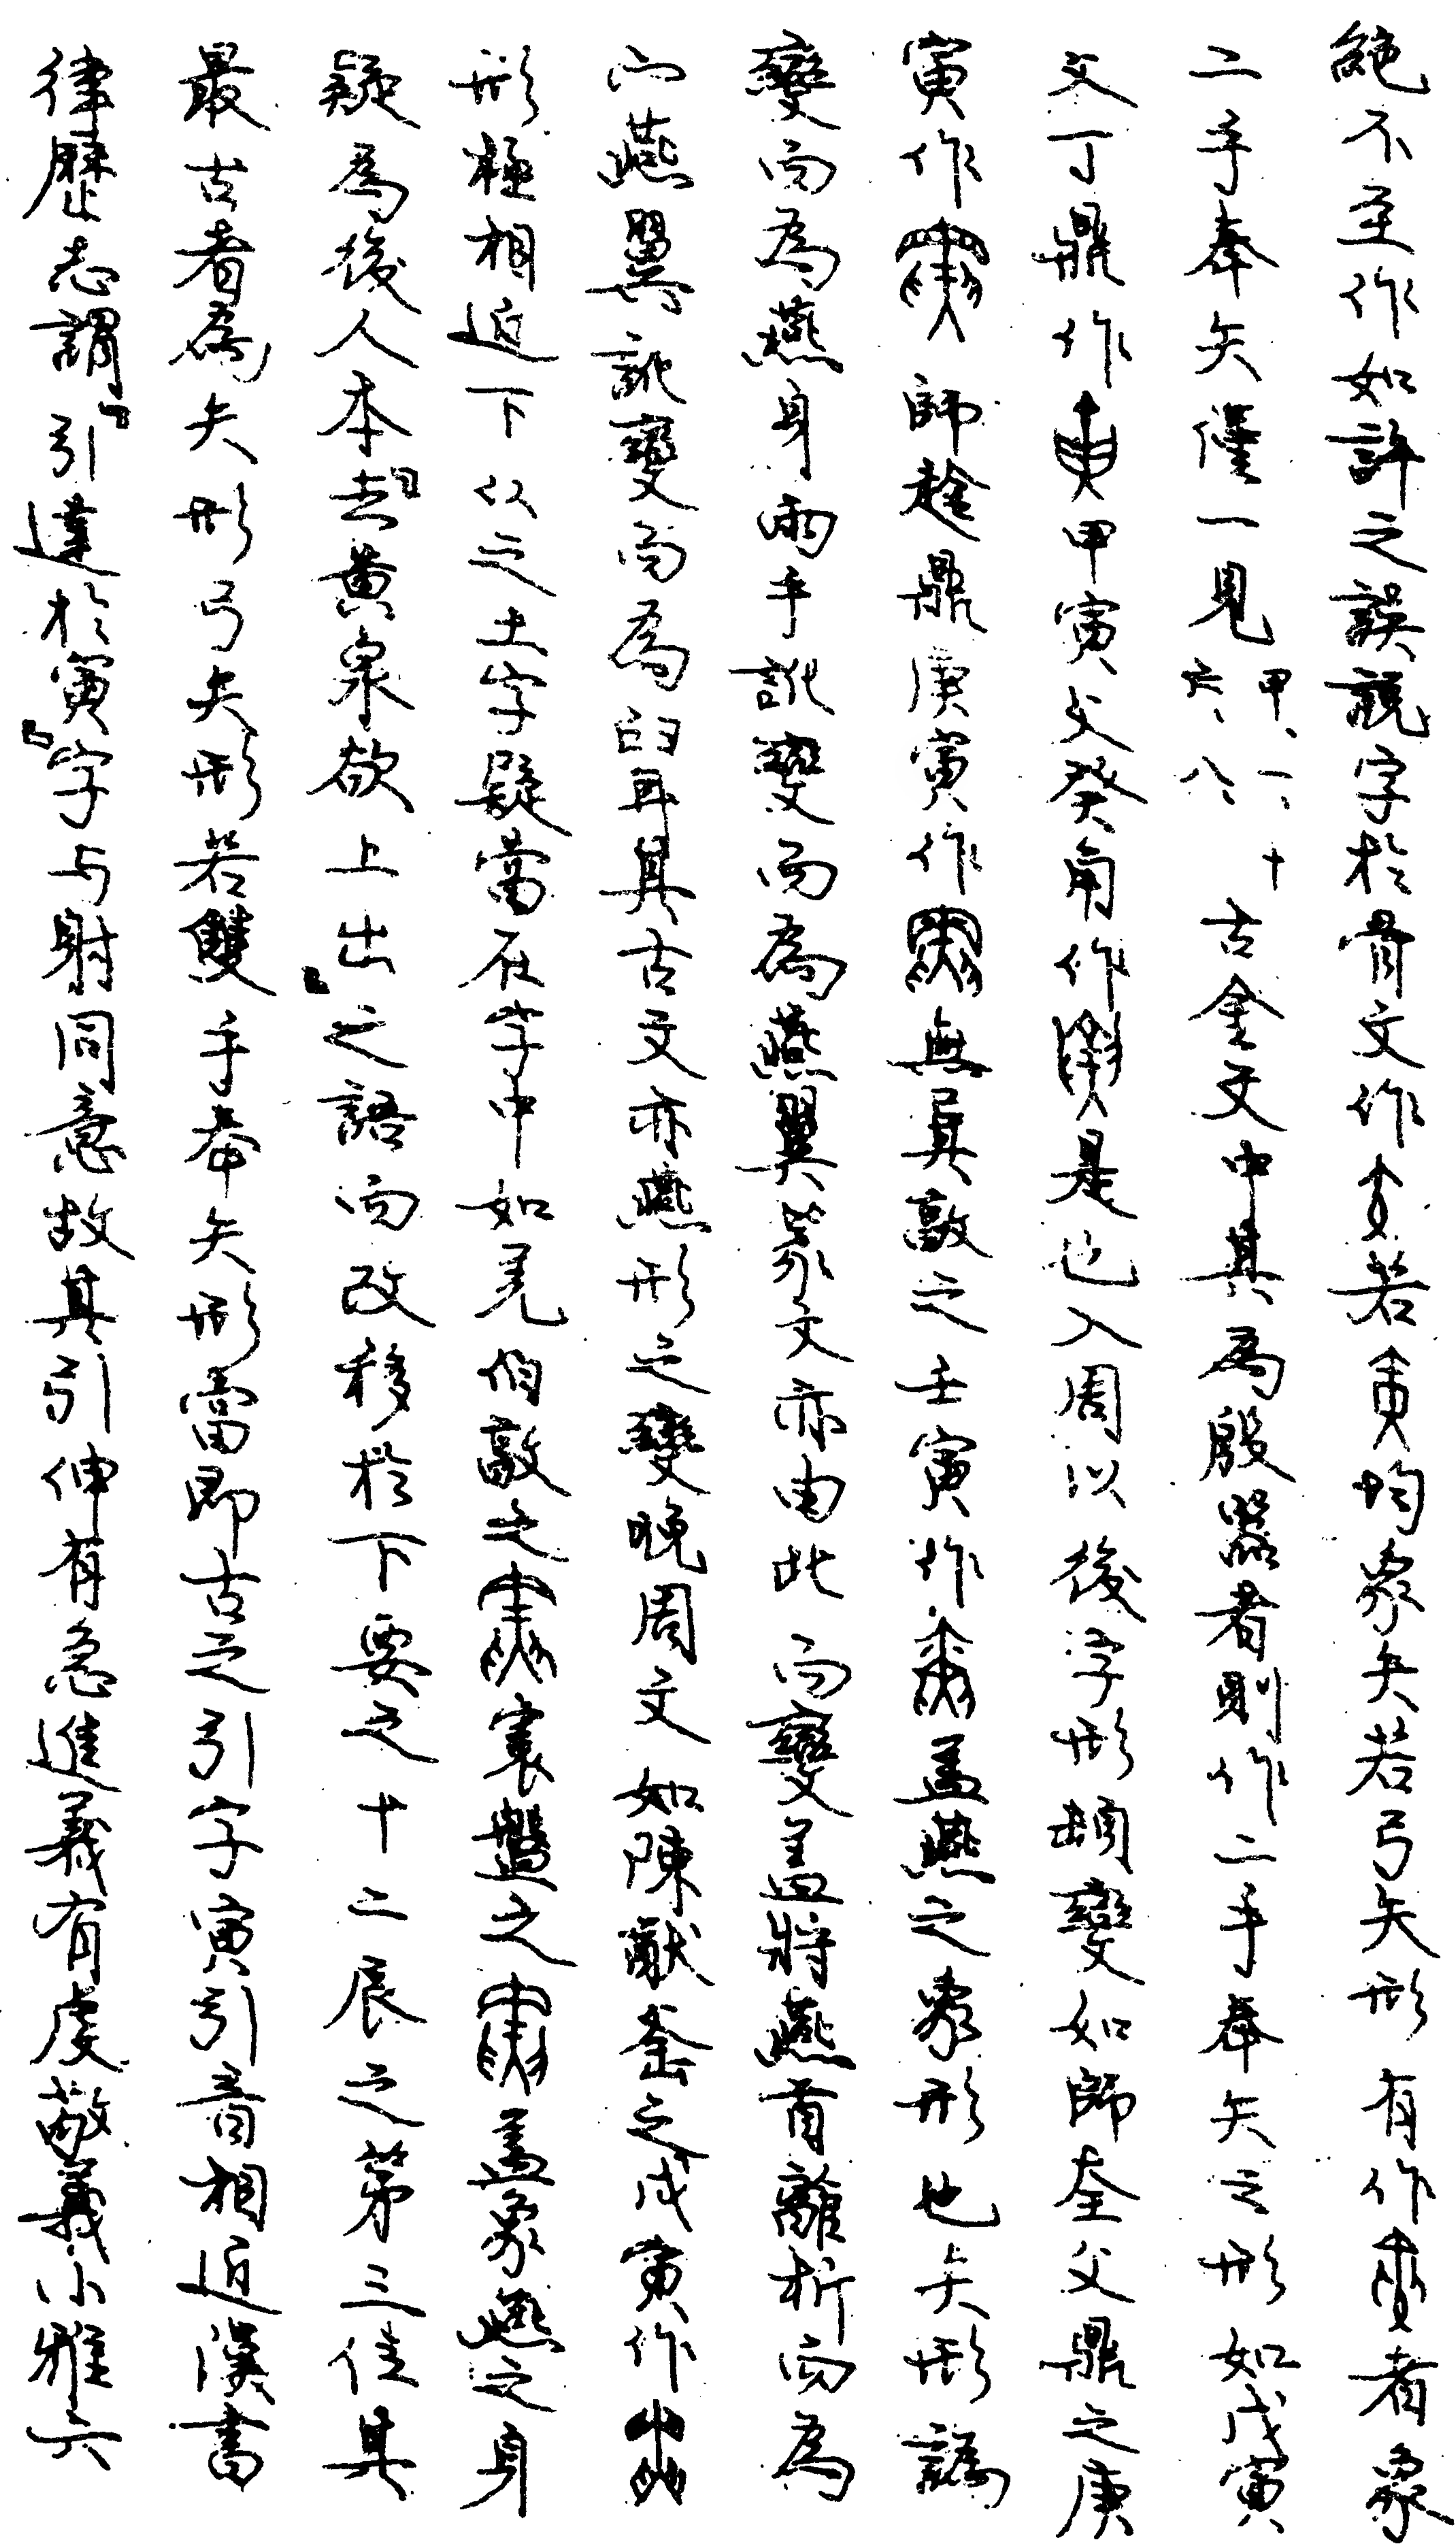 絶不至作如許之誤說字於骨文作若均象矢若弓矢形有作者象
二手奉矢僅一見甲、一、十六、八、古金文中其為殷器者則作二手奉矢之形如戊寅
父丁鼎作甲寅父癸角作是也入周以後字形頓變如師奎父鼎之庚
寅作師趛鼎庚寅作無㠱敦之壬寅作蓋燕之象形也矢形譌
變而為燕身兩手訛變而為燕翼篆文亦由此而變蓋將燕首離析而為
宀燕翼訛變而為臼耳其古文亦燕形之變晚周文如陳猷釜之戊寅作
形極相近下从之土字疑當在字中如羌伯敦之寰盤之蓋象燕之身
疑為後人本「去黃泉欲上出」之語而改移於下要之十二辰之第三位其
最古者為矢形弓矢形若雙手奉矢形當即古之引字寅引音相近漢書
律歷志謂「引達於寅」字与射同意故其引伸有急進義有虔敬義小雅六